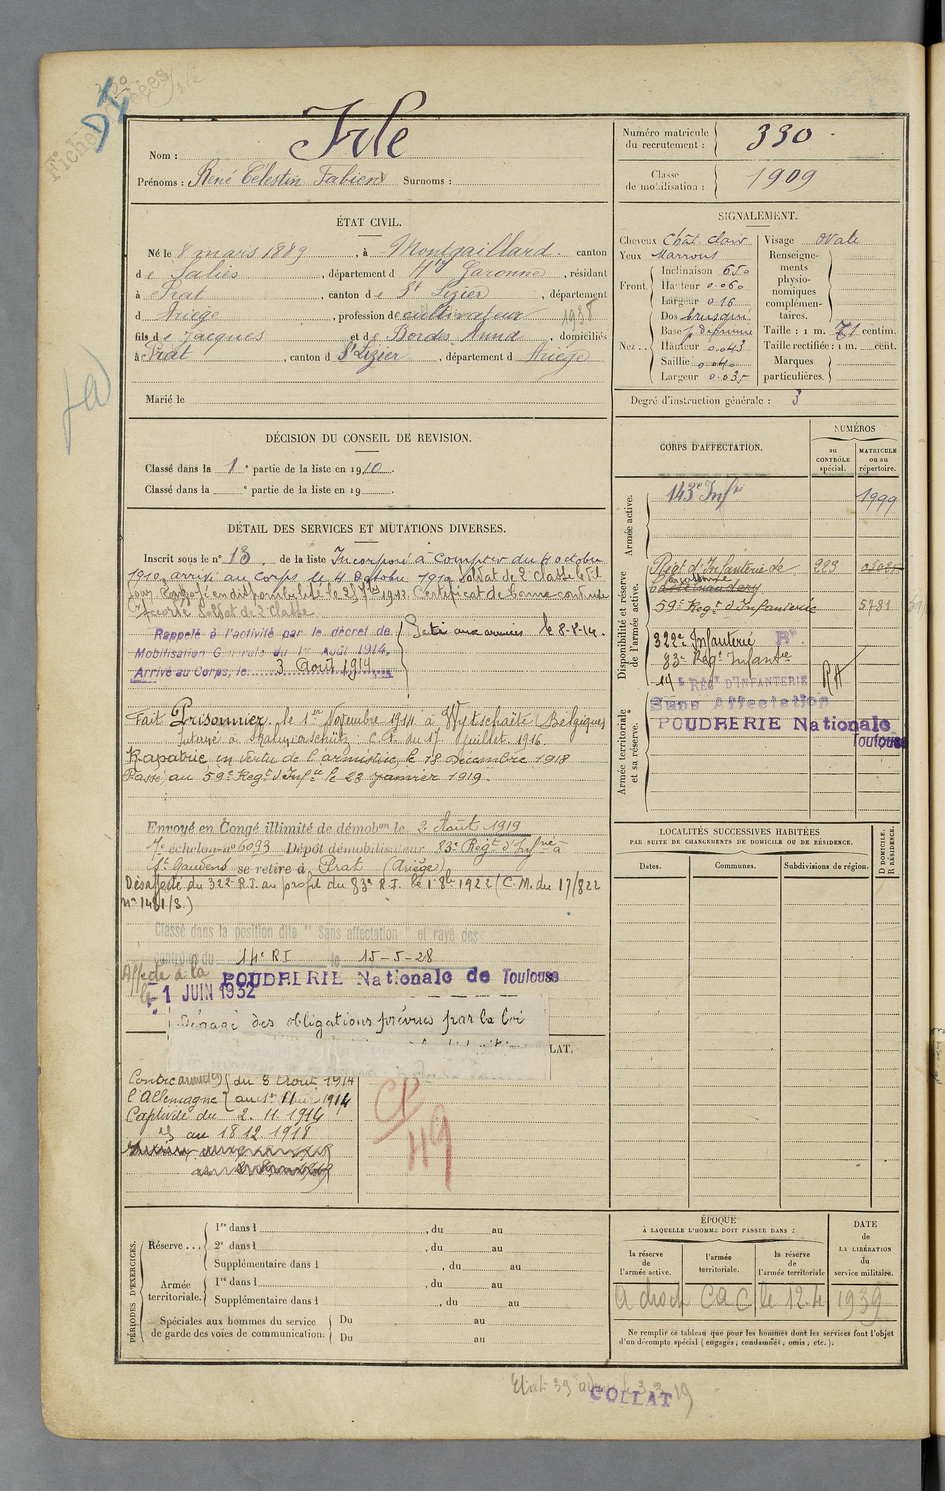 Nom : Irle
Prénoms : René Célestin Fabien Surnoms :
Numéro matricule du recrutement : 330
Classe de mobilisation : 1909
ÉTAT CIVIL.
Né le 8 mars 1889, à Montgaillard, canton
de Salies, département d Hte Garonne, résidant
à Prat, canton de St Lizier, département
d Ariège, profession de cultivateur
fils de Jacques et de Bordes Anna, domiciliés
à Prat, canton d St Lizier, département d Ariège
Marié le
SIGNALEMENT.
Cheveux Chât. clair
Yeux Marrons
Front. Inclinaison
Hauteur 0.060
Largeur 0.16
Nez. Dos busqué
Base
Hauteur 0.043
Saillie 0.040
Largeur 0.035
Visage ovale
Renseignements physionomiques complémentaires.
Taille : 1 m. 71 centim.
Taille rectifiée : 1 m. cent.
Marques particulières.
Degré d'instruction générale : 3
DÉCISION DU CONSEIL DE REVISION.
Classé dans la 1e partie de la liste en 1910.
Classé dans la e partie de la liste en 19 .
DÉTAIL DES SERVICES ET MUTATIONS DIVERSES.
Inscrit sous le n° 13 de la liste Incorporé à compter du 4 octobre
1910, arrivé au corps le 4 octobre 1910 soldat de 2e classe le dit
jour. en disponibilité le 25 1912. Certificat de bonne conduite
accordé. Soldat de 2e classe
Rappelé à l'activité par le décret de
Mobilisation Générale du 1er Août 1914.
Arrivé au Corps, le 3 Août 1914
Parti aux armées le 8-8-14.
Fait Prisonnier le 1er Novembre 1914 à Wytschaëte (Belgique)
Interné à C.R. du 17 Juillet 1916
Rapatrié en vertu de l'armistice, le 18 Décembre 1918
Passé au 59e Regt d'Infie le 23 Janvier 1919.
Envoyé en Congé illimité de démobon le 2 Août 1919
échelon no 6093 Dépôt démobilisateur 83e Regt d'Infrie à
St Gaudens se retire à Prat (Ariège)
Désaffecté du 322e R.I. au profit du 83e R.I. le 1 8 1922 (C.M. du 17/822
n° 1481/3.)
Classé dans la position dite "Sans affectation" et rayé des
contrôles du 14e RI le 15-5-28
Affecté à la POUDRERIE Nationale de Toulouse
le 1 JUIN 1932
Dégagé des obligations prévues par la loi
LAT.
Contre l'Allemagne du 3 Août 1914
au 1er 11 1914
Captivité du 2.11.1914
au 18 12 1918
CP
49
CORPS D'AFFECTATION.
NUMÉROS
au CONTRÔLE spécial.
MATRICULE ou au répertoire.
Armée active.
143e Infie 1999
Disponibilité et réserve de l'armée active.
Régt d'Infanterie de 223
59e Regt d'Infanterie 5781
322e Infanterie
83e Regt Infantie
14e RÉGt D'INFANTERIE
Armée territoriale et sa réserve.
Sans Affectation
POUDRERIE Nationale
Toulouse
LOCALITÉS SUCCESSIVES HABITÉES
PAR SUITE DE CHANGEMENTS DE DOMICILE OU DE RÉSIDENCE.
Dates.
Communes.
Subdivisions de région.
D DOMICILE.
R RÉSIDENCE.
PÉRIODES D'EXERCICES.
Réserve ...
1re dans l , du au
2e dans l , du au
Supplémentaire dans l , du au
Armée territoriale.
1re dans l , du au
Supplémentaire dans l , du au
Spéciales aux hommes du service de garde des voies de communication.
Du au
Du au
ÉPOQUE
À LAQUELLE L'HOMME DOIT PASSER DANS :
la réserve de l'armée active.
l'armée territoriale.
la réserve de l'armée territoriale
DATE DE LA LIBÉRATION du service militaire.
A droit CaC le 12.4 1939
Ne remplir ce tableau que pour les hommes dont les services font l'objet
d'un décompte spécial (engagés ; condamnés ; omis ; etc.).
COLLAT